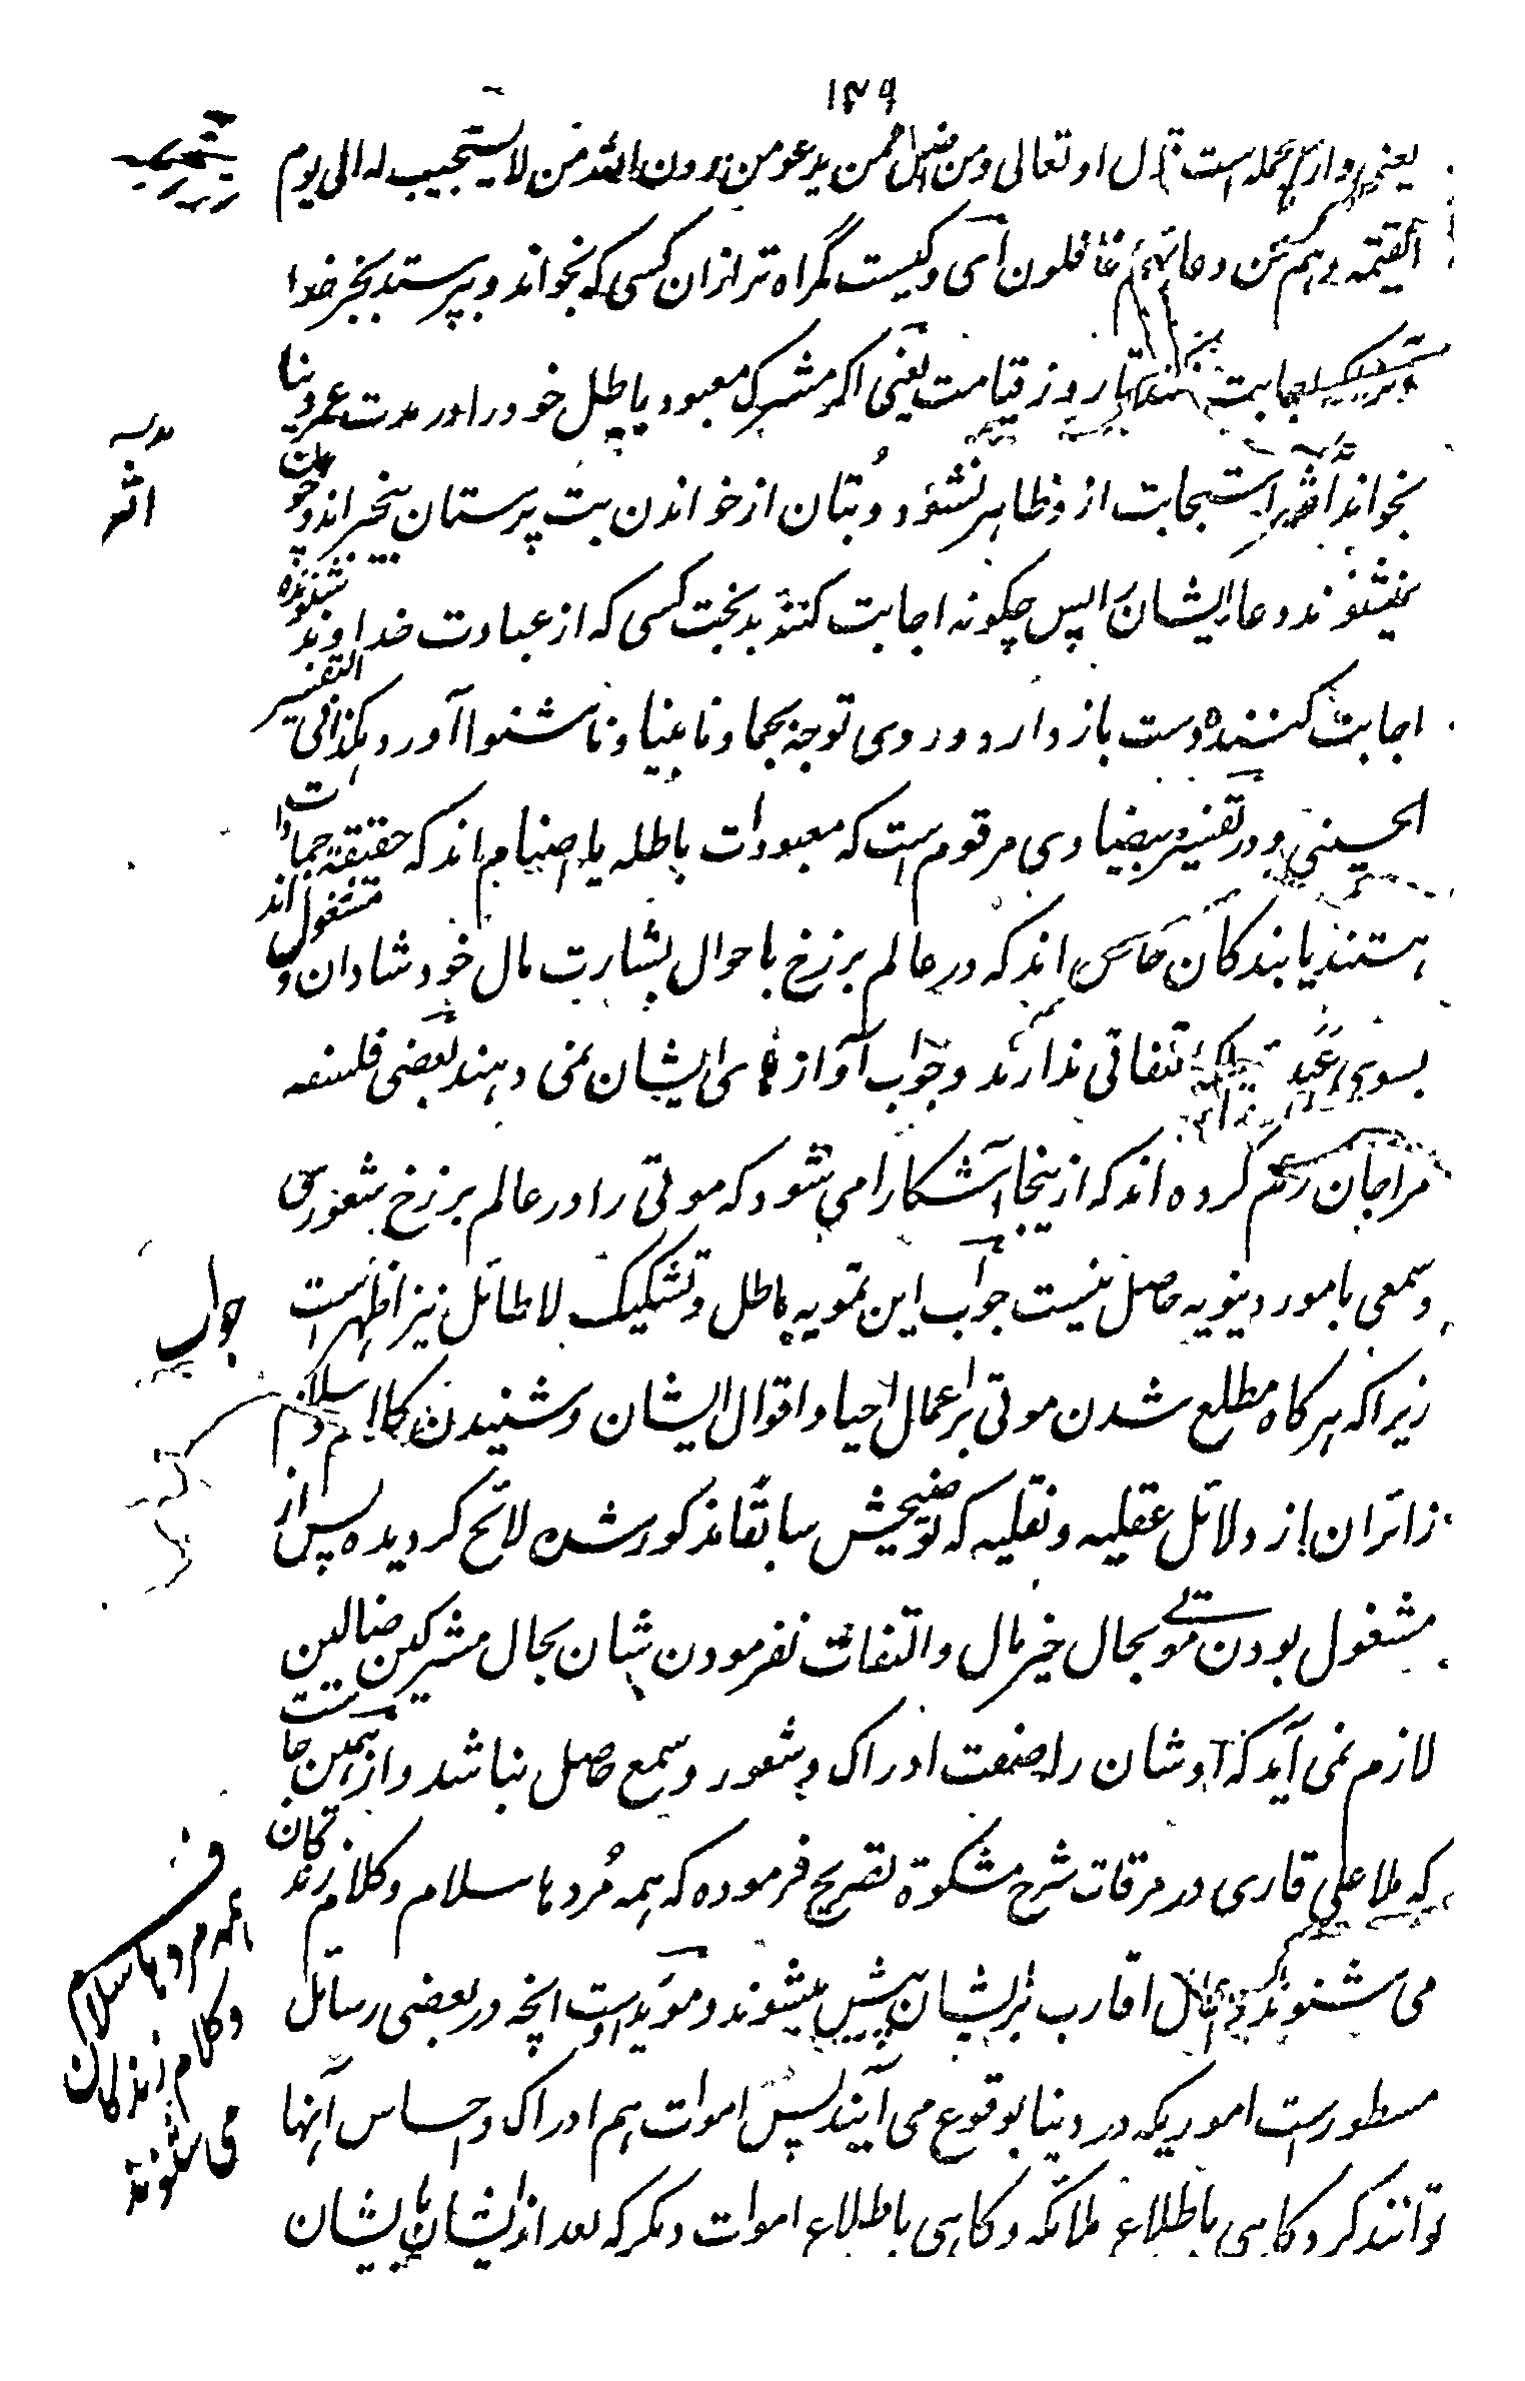 ۱۴۹
یعنی و از جمله است قال او تعالی و من اضل ممن یدعو من دون الله من لا یستجیب له الی یوم
القیمه و هم عن دعائهم غافلون ای و کیست گمراه تر ازان کسی که بخواند و بپرستد بجز خدا
اجابت نکند تا روز قیامت یعنی اگر مشرک معبود باطل خود را در مدت عمر دنیا
بخواند اثر استجابت ازو ظاهر نشود و بتان از خواندن بت پرستان بیخبر اند و چون
نمیشنوند دعا ایشان را پس چگونه اجابت کنند بدبخت کسی که از عبادت خداوند شنونده
اجابت کننده دست باز دارد و روی توجه بجماد نابینا و ناشنوا آورد هکذا فی التفسیر
الحسینی و در تفسیر بیضاوی مرقوم است که معبودات باطله یا اصنام اند که حقیقة جمادات
هستند یا بندگان خاص اند که در عالم برزخ باحوال بشارت مال خود شادان و مشغول اند
بسوی التفاتی ندارند و جواب آواز های ایشان نمی دهند بعضی فلسفه
مزاجان رقم کرده اند که ازینجا آشکارا می شود که موتی را در عالم برزخ شعوری
و سمعی بامور دنیویه حاصل نیست جواب این تمویه باطل و تشکیک لا طائل نیز اظهر است
زیرا که هرگاه مطلع شدن موتی بر اعمال احیا و اقوال ایشان و شنیدن کلام و سلام
زائران از دلائل عقلیه و نقلیه که توضیحش سابقا مذکور شده لائح گردیده پس از
مشغول بودن موتی بحال خیر مال و التفات نفرمودن شان بحال مشرکین ضالین
لازم نمی آید که اوشان را صفت ادراک و شعور و سمع حاصل نباشد و از همین جاست
که ملا علی قاری در مرقات شرح مشکوة تصریح فرموده که همه مُرده ها سلام و کلام زندگان
می شنوند و اعمال اقارب بر ایشان پیش میشوند و موید اوست انچه در بعضی رسائل
مسطور است اموریکه در دنیا بوقوع می آیند پس اموات هم ادراک و احساس آنها
توانند کرد گاهی باطلاع ملائکه و گاهی باطلاع اموات دیگر که بعد از ایشان بایشان
اثر
جواب
ف
همه مرده ها سلام
و کلام زندگان
می شنوند